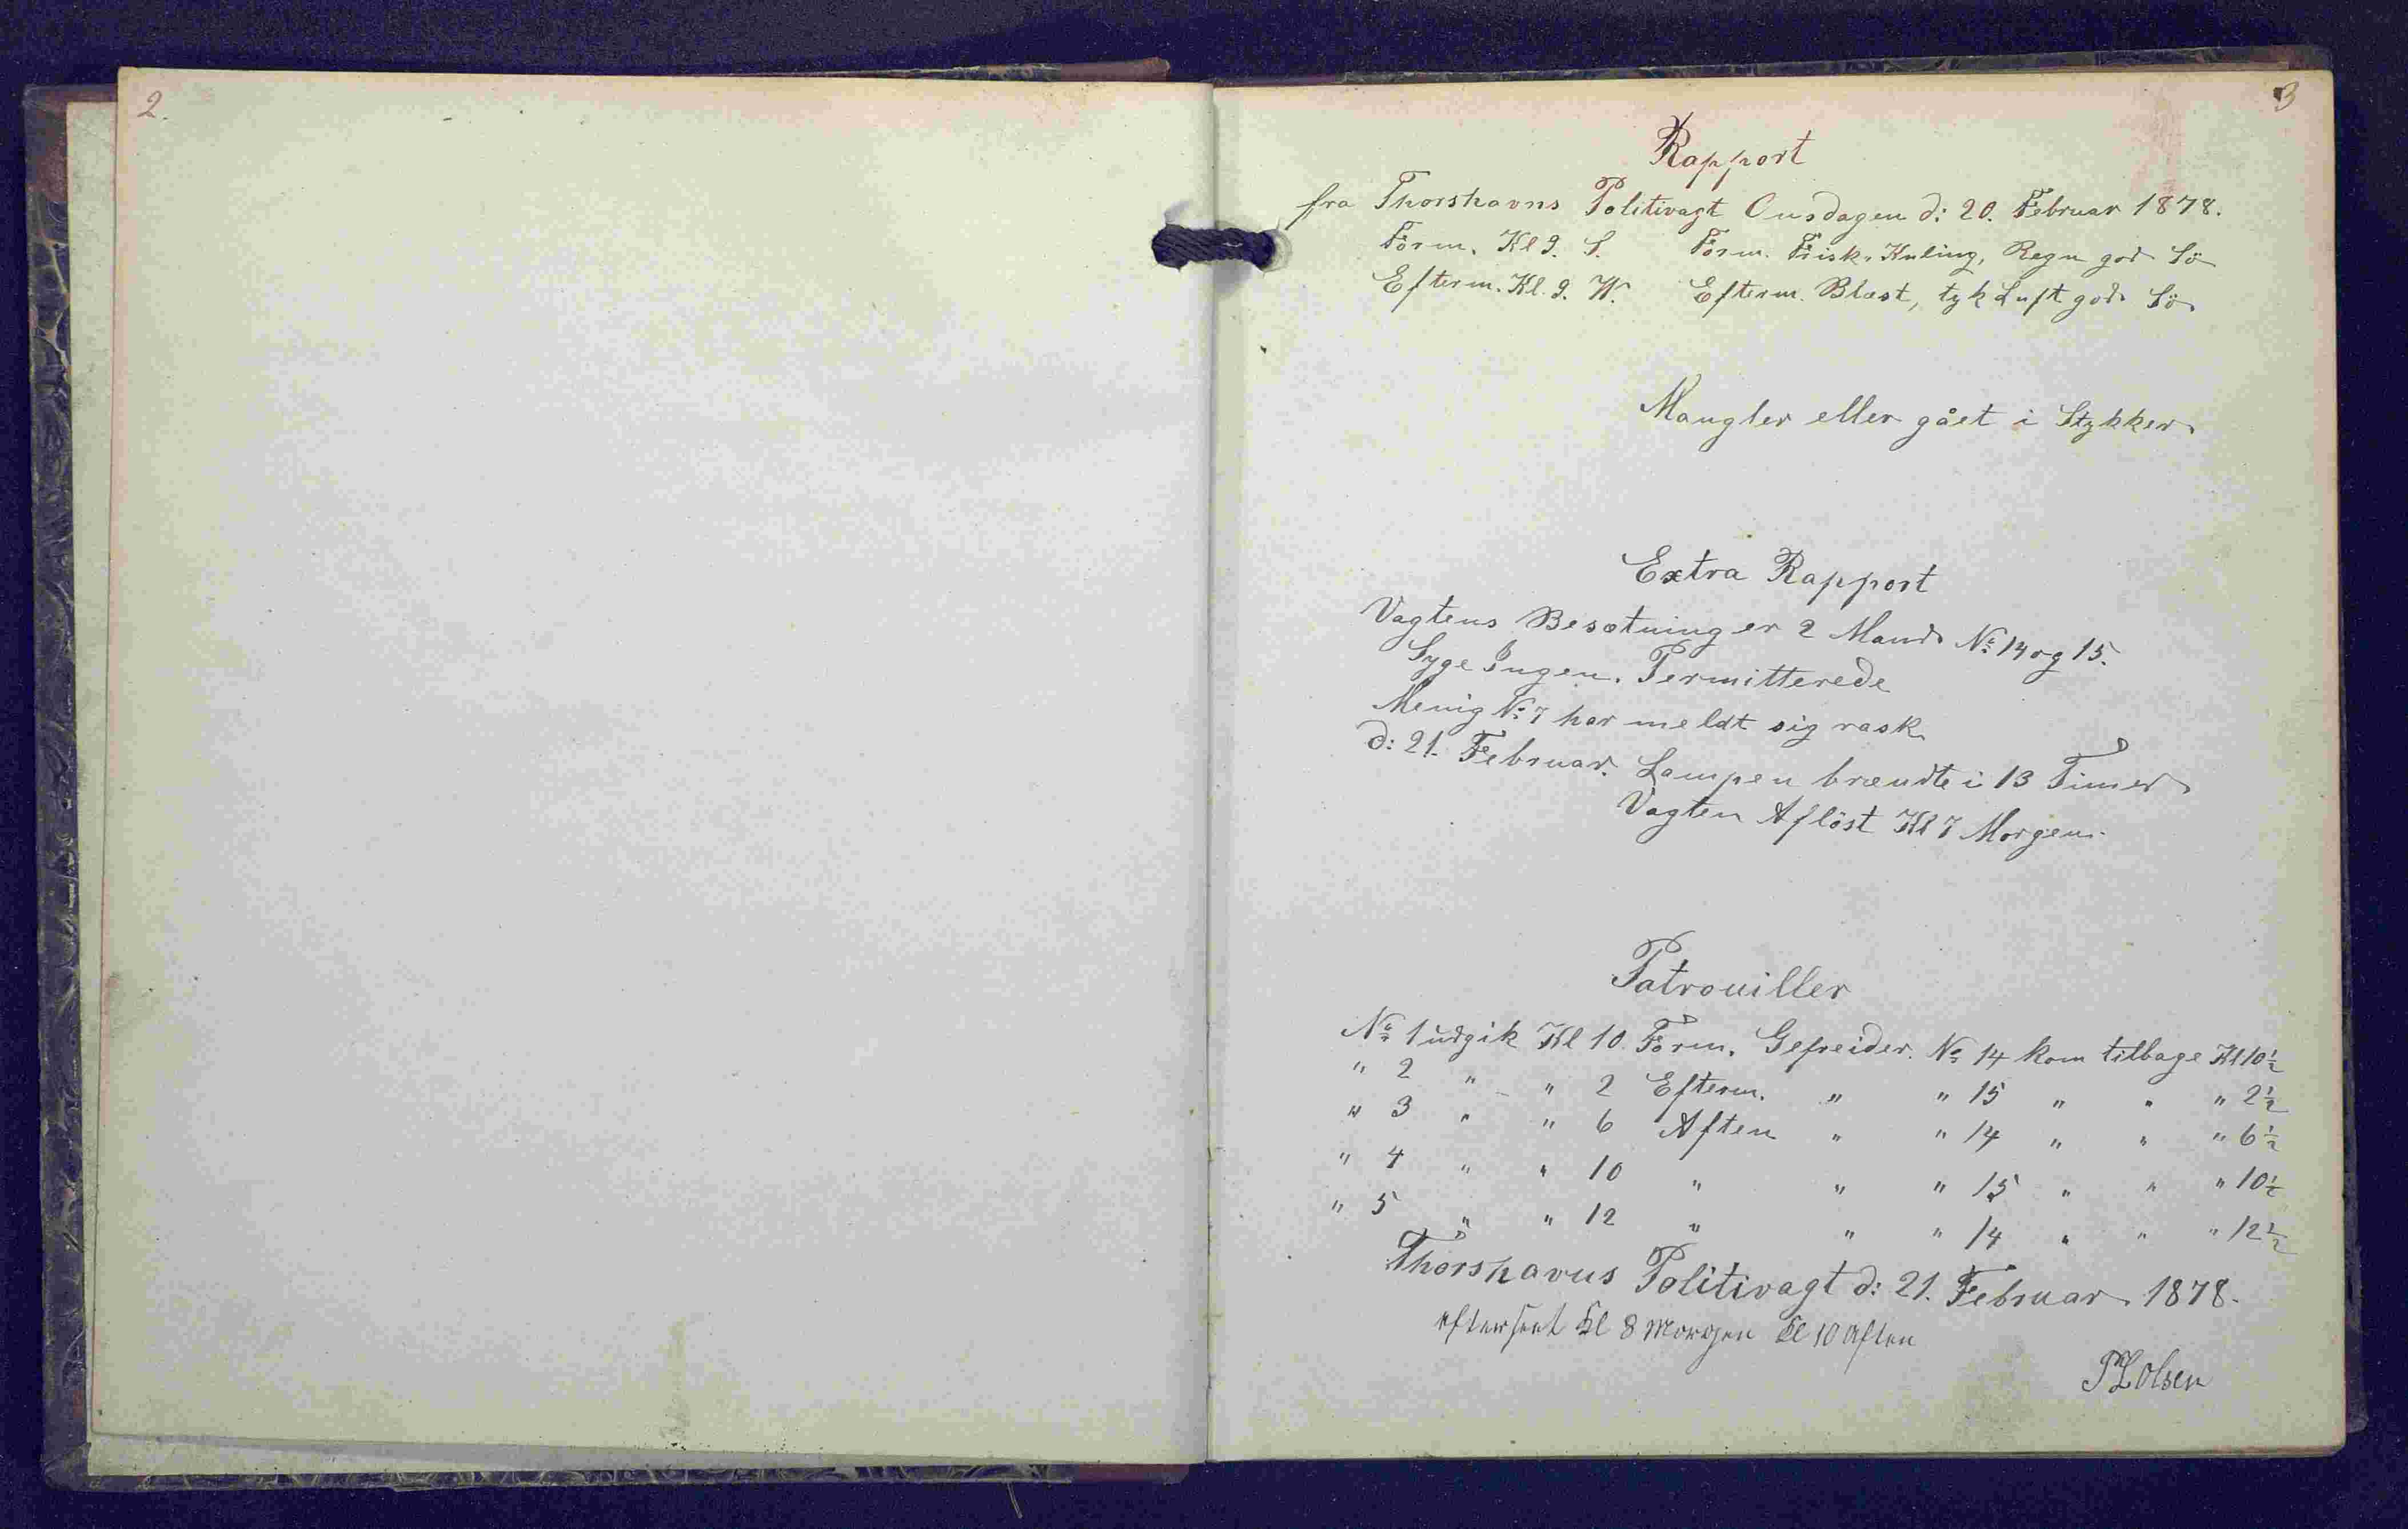 2.
3
Rapport
fra Thorshavns Politivagt Onsdagen d: 20. Februar 1878.
Form. Kl 9. S. Form. Frisk Kuling, Regn god Sö
Efterm. Kl. 9. W. Efterm. Blæst, tyk Luft god Sö
Mangler eller gået i Stykker
Extra Rapport
Vagtens Besætning er 2 Mand No 14 og 15.
Syge Ingen. Permitterede
Menig No 7 har meldt sig rask
d: 21. Februar. Lampen brændte i 13 Timer
Vagten Aflöst Kl 7 Morgen
Patrouiller
No 1 udgik Kl 10 Form. Gefreider. No 14 kom tilbage Kl 10½
" 2 " " 2 Efterm. " " 15 " " " 2½
" 3 " " 6 Aften " " 14 " " " 6½
" 4 " " 10 " " " 15 " " " 10½
" 5 " " 12 " " " 14 " " " 12½
Thorshavns Politivagt d: 21. Februar 1878.
efterseet Kl 8 Morgen Kl 10 Aften
Olsen